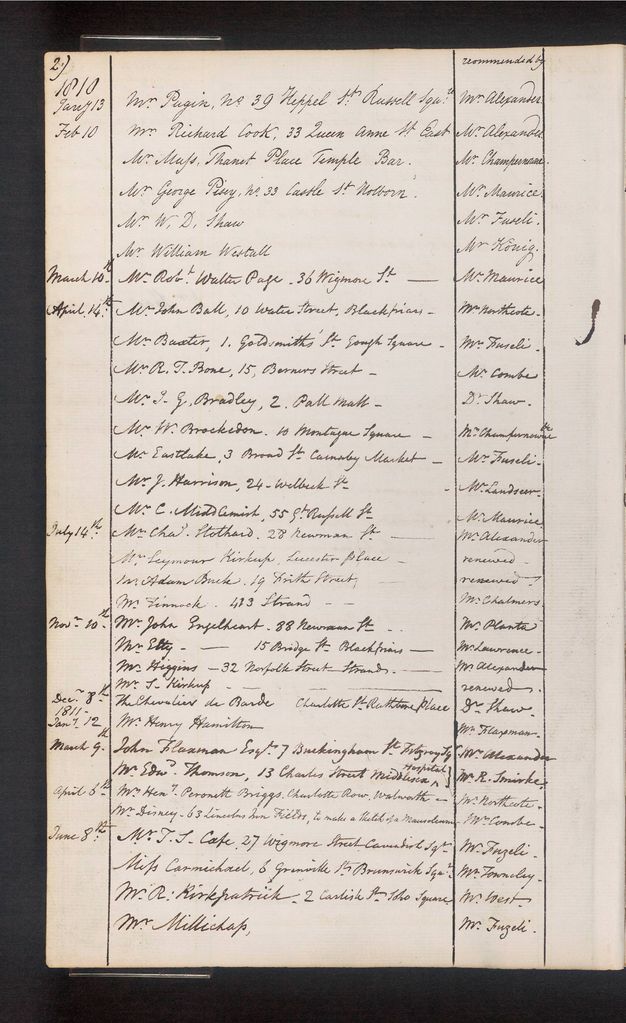 2.) recommended by
1810
Jany 13 Mr Pugin, No 39 Keppel St. Russell Squre Mr Alexander
Feb 10 Mr Richard Cook, 33 Queen Anne St East Mr Alexander
Mr Mass, Thanet Place Temple Bar. Mr Champernowne.
Mr George Pisey, No. 33 Castle St Holborn. Mr Maurice.
Mr W. D. Shaw Mr Fuseli.
Mr William Westall Mr König.
March 10th Mr Robt. Walter Page - 36 Wigmore St — Mr Maurice
April. 14th Mr John Ball, 10 Water Street, Blackfriars - Mr Northcote.
Mr Baxter, 1. Goldsmiths' St Gough Square - Mr Fuseli -
Mr R. T. Bone, 15, Berners Street - Mr Combe
Mr J. G. Bradley, 2. Pall Mall - Dr Shaw.
Mr W. Brockedon. 10 Montague Square - Mr Champernowne
Mr Eastlake, 3 Broad St Carnaby Market - Mr Fuseli -
Mr J. Harrison, 24 - Welbeck St - Mr Landseer.
Mr C. Middlemish, 55 Gt Russell St Mr Maurice
July 14th Mr Chas. Stothard. 28 Newman St — Mr Alexander
Mr Seymour Kirkup, Leicester Place - renewed -
Mr Adam Buck. 19 Frith Street, — renewed
Mr Finnock. 483 Strand - - Mr Chalmers
Novr. 10th Mr John Engelheart. 88 Newman St - . . Mr Planta
Mr Etty - — 15 Bridge St Blackfriars — Mr Lawrence -
Mr Higgins - 32 Norfolk Street Strand - — Mr Alexander
Mr S- Kirkup — renewed -
Decr. 8th The Chevalier de Barde Charlotte St. Rathbone Place Dr Shaw.
1811-
Jany. 12 Mr Henry Hamilton Mr Flaxman.
March 9th John Flaxman Esqr. 7 Buckingham St Fitzroy Sq Mr Alexander
Mr Edwd. Thomson, 13 Charles Street Middlesex Hospital Mr R. Smirke
April 6th Mr Heny. Peronett Briggs, Charlotte Row, Walworth — Mr Northcote -
Mr Disney - 63 Lincolns Inn Fields, to make a sketch of a Mausoleum Mr Combe -
June 8th Mr T. S. Cafe, 27 Wigmore Street Cavendish Sqr. Mr Fuzeli -
Miss Carmichael, 6 Grenville St Brunswick Sqr. Mr Towneley -
Mr R. Kirkpatrick - 2 Carlisle St Soho Square Mr West -
Mr Millichap, Mr Fuzeli -